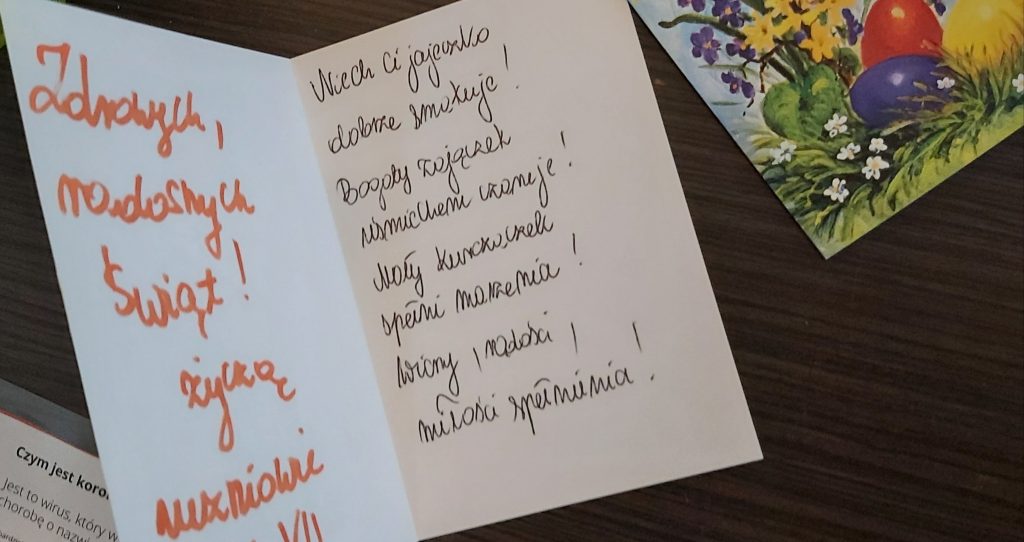 Zdrowych,
radosnych
Świąt!
życzą
uczniowie
VII
Niech Ci jajeczko
dobrze smakuje!
Bogaty zajączek
uśmiechem czaruje!
Mały kurczaczek
spełni marzenia!
Wiary, radości,
miłości spełnienia!
Czym jest koro
Jest to wirus, który w
chorobę o nazwi